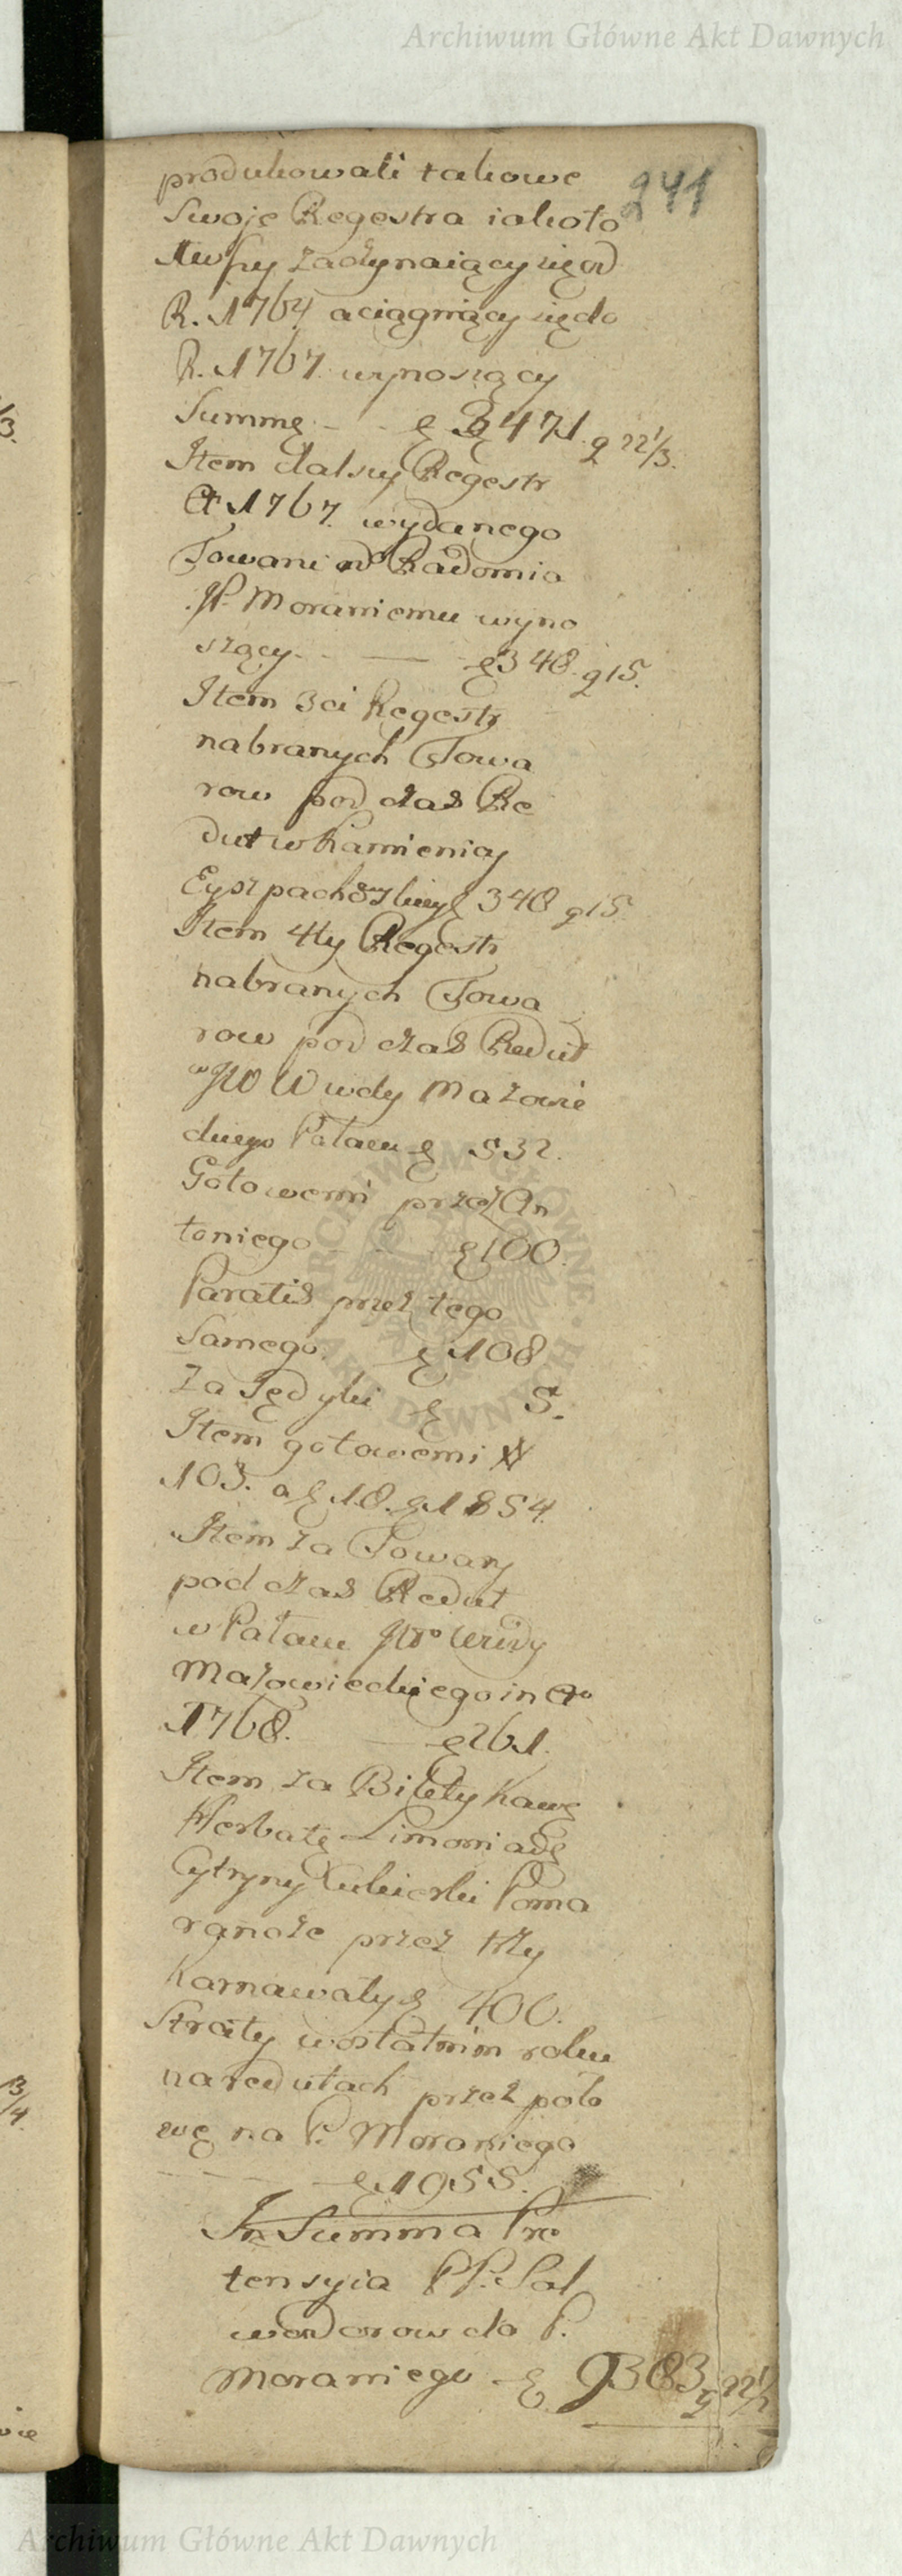 Archiwum Główne Akt Dawnych
241
produkowali takowe
Swoje Regestra iakoto
1wszy zaczynaiący się od
R. 1764 aciągnący siędo
R. 1767. wynoszący
Summę - - 3471. g 22 1/3.
Item dalszy Regestr
A 1767. wydanego
Towaru od Radomia
JP. Moraniemu wyno
szący - - 348. g 15.
Item 3ci Regestr
nabranych Towa
row pod czas Re
dut w Kamienicy
348 g 15.
Item 4ty Regestr
nabranych Towa
row pod czas Redut
w JW Wwdy Mazowie
ckiego Pałacu 532.
Gotowemi przez An
toniego - - 100.
Paratis przez tego
Samego. 108
Za Jędyki 5.
Item gotowemi #
103. a 18. 1854.
Item za Towary
pod czas Redut
w Pałacu JWo Wwdy
Mazowieckiegoin Ao
1768. - 261.
Item za Bilety Kawę
Herbatę Limoniadę
Cytryny Cukierki Poma
rancze przez trzy
Karnawały 400.
Straty wostatnim roku
naredutach przez poło
wę na P. Moraniego
- - 1955.
In Summa Pre
tensyia PP. Sal
wadorow do P.
Moraniego - 9383 g 22 1/2
Archiwum Główne Akt Dawnych